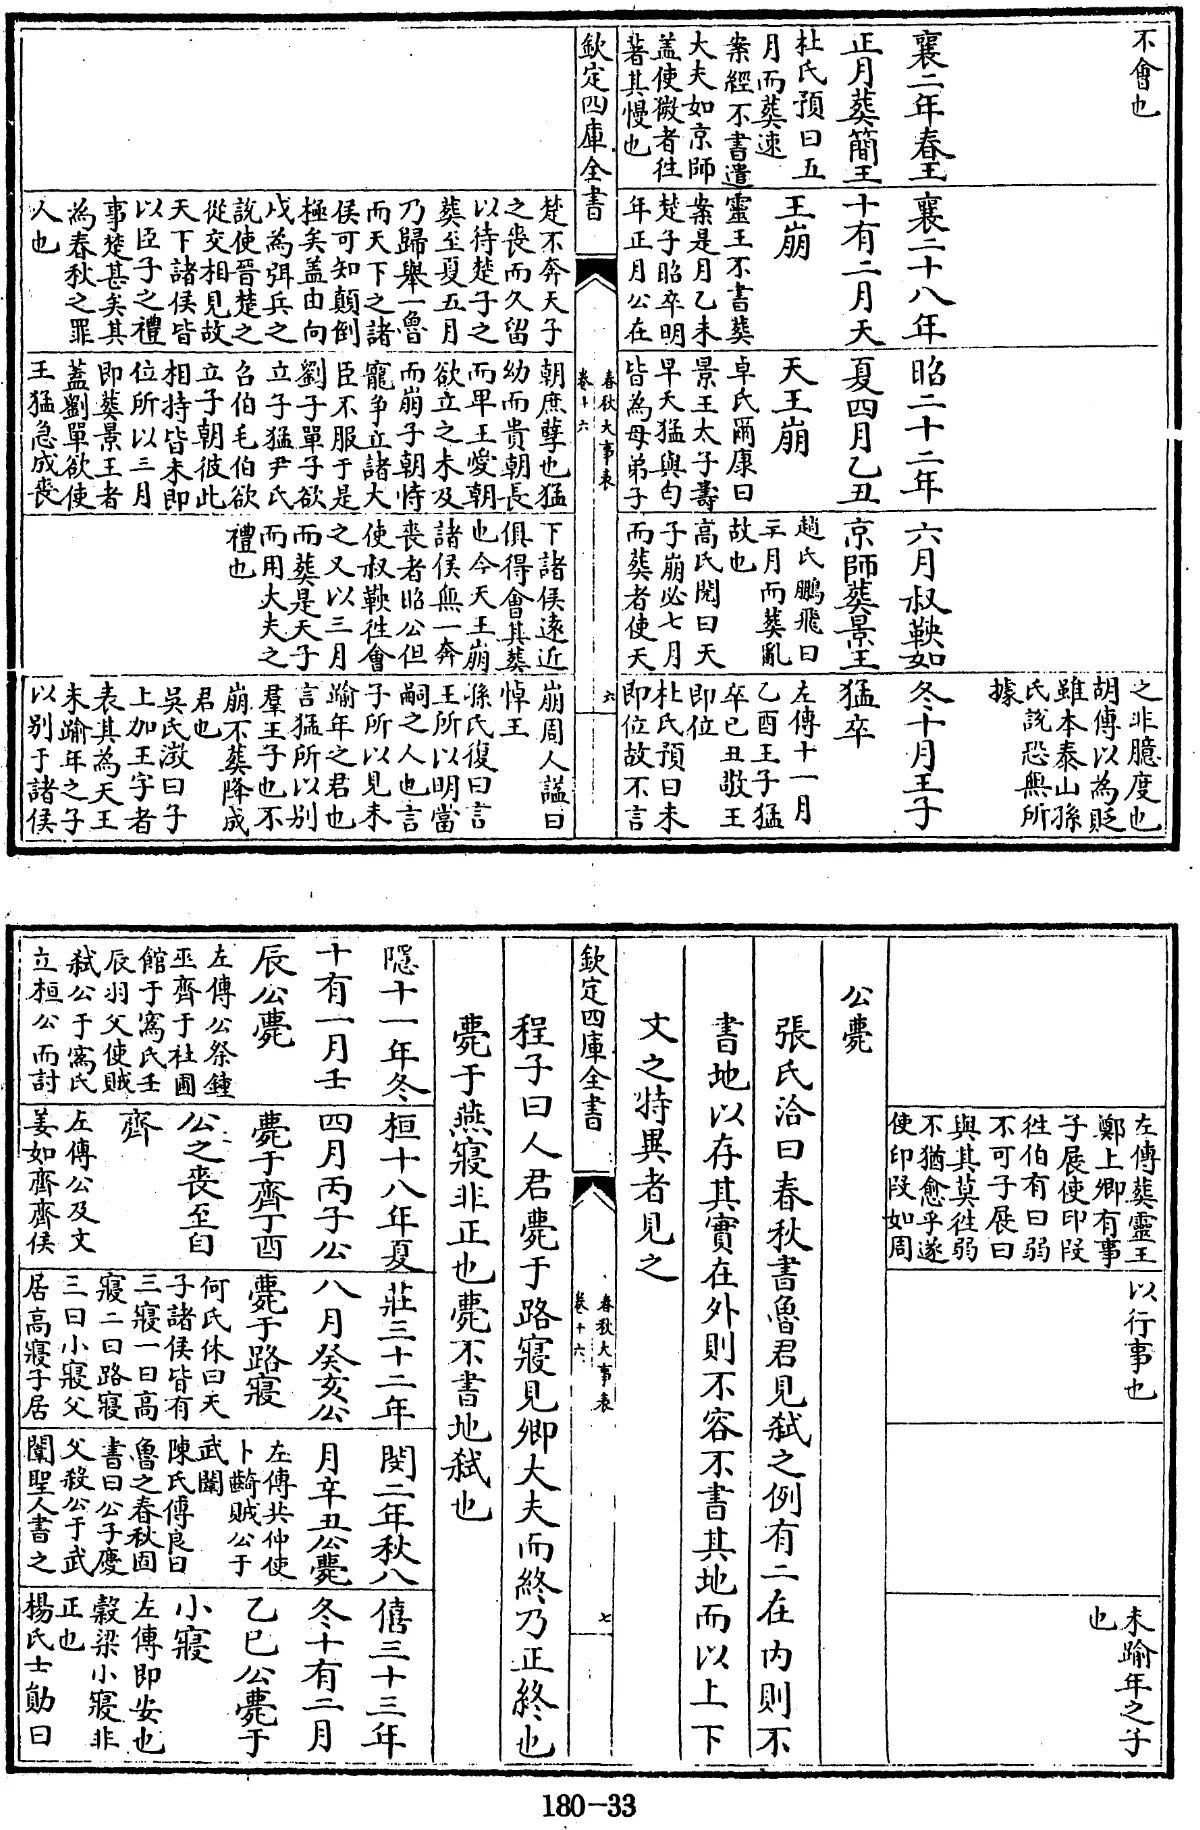 不會也
襄二年春王
正月葬簡王
杜氏預曰五
月而葬速
案經不書遣
大夫如京師
蓋使微者往
著其慢也
襄二十八年
十有二月天
王崩
靈王不書葬
案是月乙未
楚子昭卒明
年正月公在
昭二十二年
夏四月乙丑
天王崩
卓氏爾康曰
景王太子壽
早夭猛與匄
皆為母弟子
六月叔鞅如
京師葬景王
趙氏鵬飛曰
三月而葬亂
故也
高氏閌曰天
子崩必七月
而葬者使天
之非臆度也
胡傳以為貶
雖本泰山孫
氏說恐無所
據
冬十月王子
猛卒
左傳十一月
乙酉王子猛
卒已丑敬王
即位
杜氏預曰未
即位故不言
欽定四庫全書
春秋大事表
卷十六
六
楚不奔天子
之喪而久留
以待楚子之
葬至夏五月
乃歸舉一魯
而天下之諸
侯可知顛倒
極矣蓋由向
戌為弭兵之
說使晉楚之
從交相見故
天下諸侯皆
以臣子之禮
事楚甚矣其
為春秋之罪
人也
朝庶孽也猛
幼而貴朝長
而卑王愛朝
欲立之未及
而崩子朝恃
寵爭立諸大
臣不服于是
劉子單子欲
立子猛尹氏
召伯毛伯欲
立子朝彼此
相持皆未即
位所以三月
即葬景王者
蓋劉單欲使
王猛急成喪
下諸侯遠近
俱得會其葬
也今天王崩
諸侯無一奔
喪者昭公但
使叔鞅往會
之又以三月
而葬是天子
而用大夫之
禮也
崩周人謚曰
悼王
孫氏復曰言
王所以明當
嗣之人也言
子所以見未
踰年之君也
言猛所以别
羣王子也不
崩不葬降成
君也
吳氏澂曰子
上加王字者
表其為天王
未踰年之子
以别于諸侯
左傳葬靈王
鄭上卿有事
子展使印段
往伯有曰弱
不可子展曰
與其莫往弱
不猶愈乎遂
使印段如周
以行事也
未踰年之子
也
公薨
張氏洽曰春秋書魯君見弑之例有二在内則不
書地以存其實在外則不容不書其地而以上下
文之特異者見之
欽定四庫全書
春秋大事表
卷十六
七
程子曰人君薨于路寢見卿大夫而終乃正終也
薨于燕寢非正也薨不書地弑也
隱十一年冬
十有一月壬
辰公薨
左傳公祭鍾
巫齊于社圃
館于寪氏壬
辰羽父使賊
弑公于寪氏
立桓公而討
桓十八年夏
四月丙子公
薨于齊丁酉
公之喪至自
齊
左傳公及文
姜如齊齊侯
莊三十二年
八月癸亥公
薨于路寢
何氏休曰天
子諸侯皆有
三寢一曰高
寢二曰路寢
三曰小寢父
居高寢子居
閔二年秋八
月辛丑公薨
左傳共仲使
卜齮賊公于
武闈
陳氏傅良曰
魯之春秋固
書曰公子慶
父殺公于武
闈聖人書之
僖三十三年
冬十有二月
乙巳公薨于
小寢
左傳即安也
穀梁小寢非
正也
楊氏士勛曰
180-33